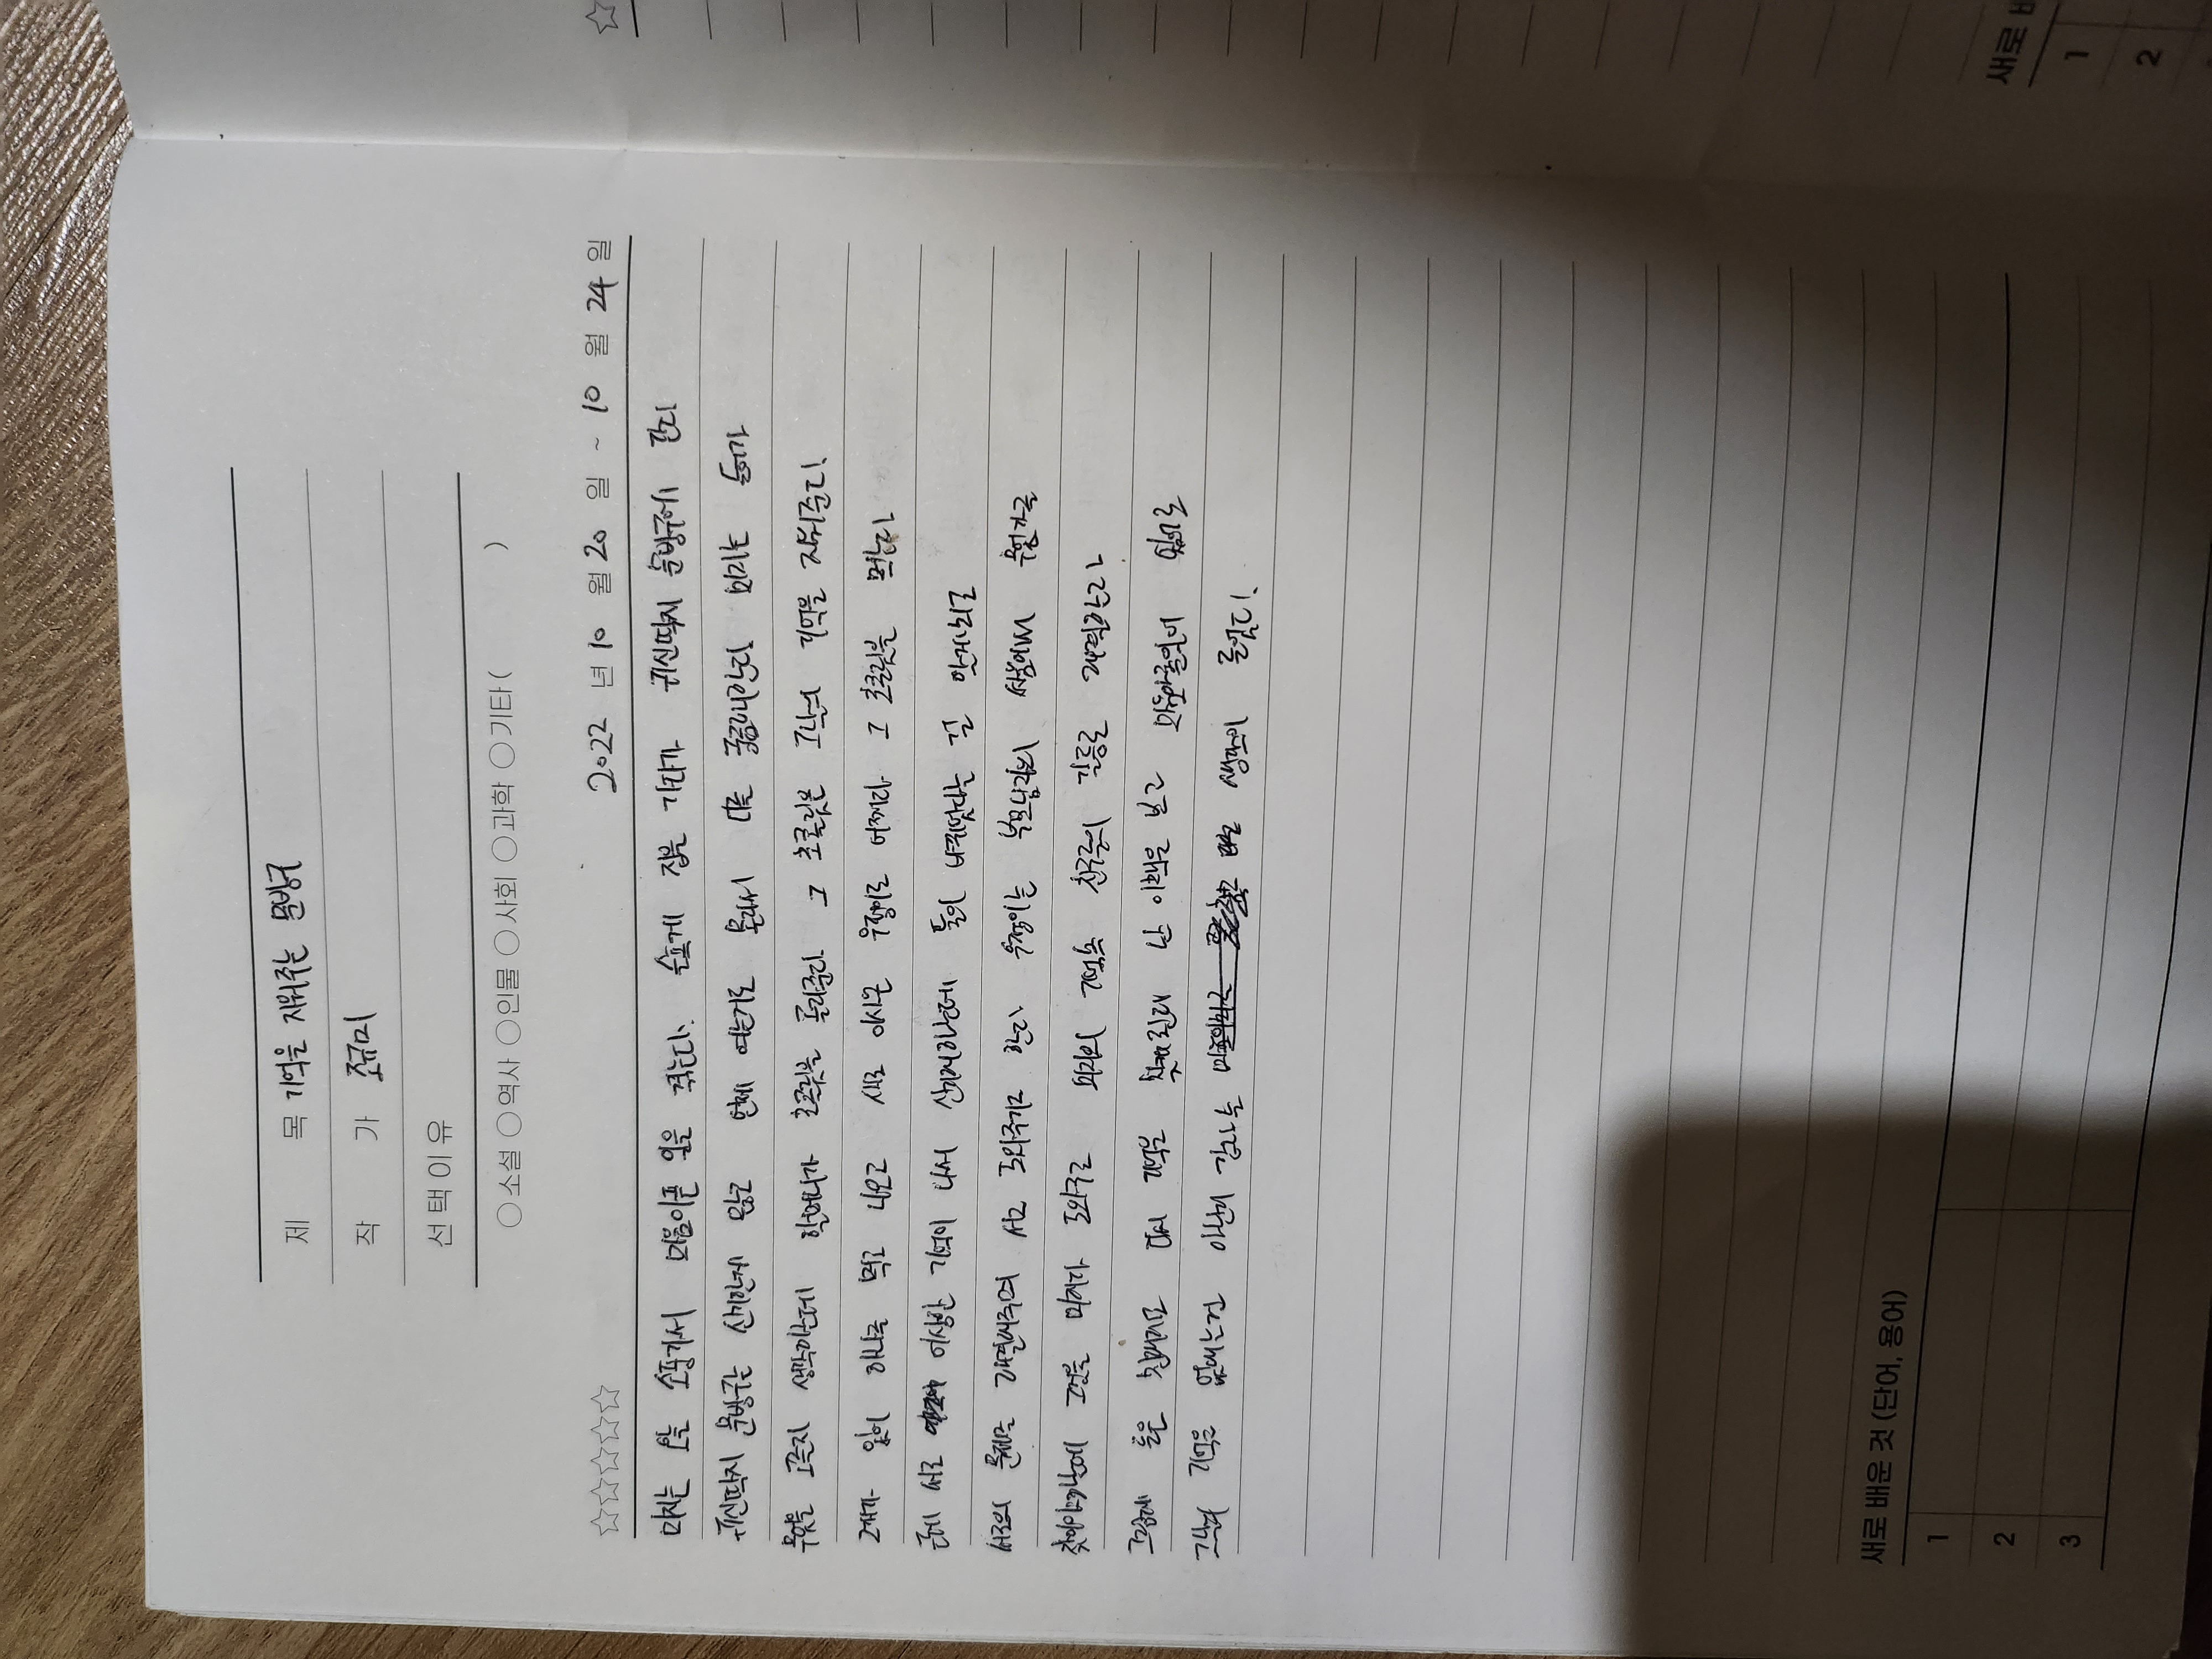 제 목 기억을 지워주는 문방구
작 가 조규미
선택이유
○소설 ○역사 ○인물 ○사회 ○과학 ○기타( )
☆☆☆☆☆ 2022 년 10 월 20 일 ~ 10 월 24 일
미지는 오늘 소풍가서 마음아픈 일을 겪는다. 슬프게 집을 가다가 귀신딱지 문방구에 간다
귀신딱지 문방구는 신기한게 많고 언제 여는지도 몰라서 다들 궁금해한다. 미지는 들어가
무엇을 고를지 생각하는데 할머니가 초콜릿을 골라준다. 그 초콜릿은 그날의 기억을 지워준다.
2개가 있어 하나를 먹고 나오고 새로 이사온 우정이도 어쩌다 그 초콜릿을 먹는다
근데 서로 이상한 기억이 나서 신기해하는데 둘의 바뀌었다는 걸 알게되고
서로의 문제를 해결해주며 서로 도와주기로 한다 우정이는 부모님과의 싸움에서 무언가를
찾아야하는데 그것을 미지가 도와주고 미지의 기억속 친구들의 갈등도 해결한다
그렇게 둘은 친해지고 다시 기억을 난 이책을 보고 마음아픈일이 있어도
그날의 기억을 없애는건 아닌거 같다는 생각이 들었다.
새로 배운 것 (단어, 용어)
1
2
3
새로 배
1
2